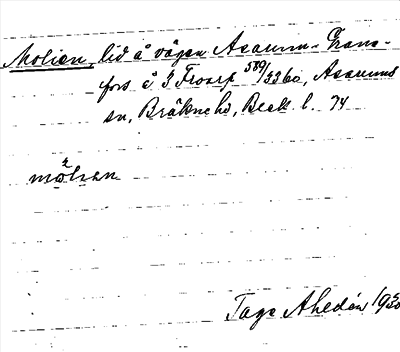 Molien, lid å vägen Asarum-Grans-
fors å 3 Froarp 589/33 60, Asarums
sn, Bräkne hd, Blek. l. 74
mölien
Tage Ahldén 1930